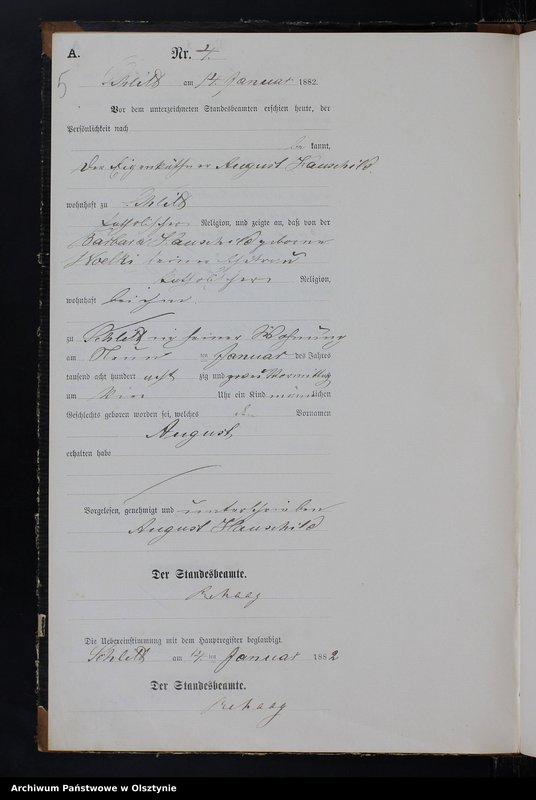 A.
Nr. 4.
5
Schlitt am 14. Januar 1882.
Vor dem unterzeichneten Standesbeamten erschien heute, der
Persönlichkeit nach
be kannt,
der Eigenkäthner August Hauschild
wohnhaft zu Schlitt
katholischer Religion, und zeigte an, daß von der
Barbara Hauschild geborene
Woelki seiner Ehefrau
katholischer Religion,
wohnhaft bei ihm
zu Schlitt in seiner Wohnung
am Neun ten Januar des Jahres
tausend acht hundert acht zig und zwei Vormittag
um Uhr ein Kind männlichen
Geschlechts geboren worden sei, welches den Vornamen
August
erhalten habe
Vorgelesen, genehmigt und unterschrieben
August Hauschild
Der Standesbeamte.
Rehaag
Die Uebereinstimmung mit dem Hauptregister beglaubigt.
Schlitt am 14. ten Januar 1882
Der Standesbeamte.
Rehaag
Archiwum Państwowe w Olsztynie